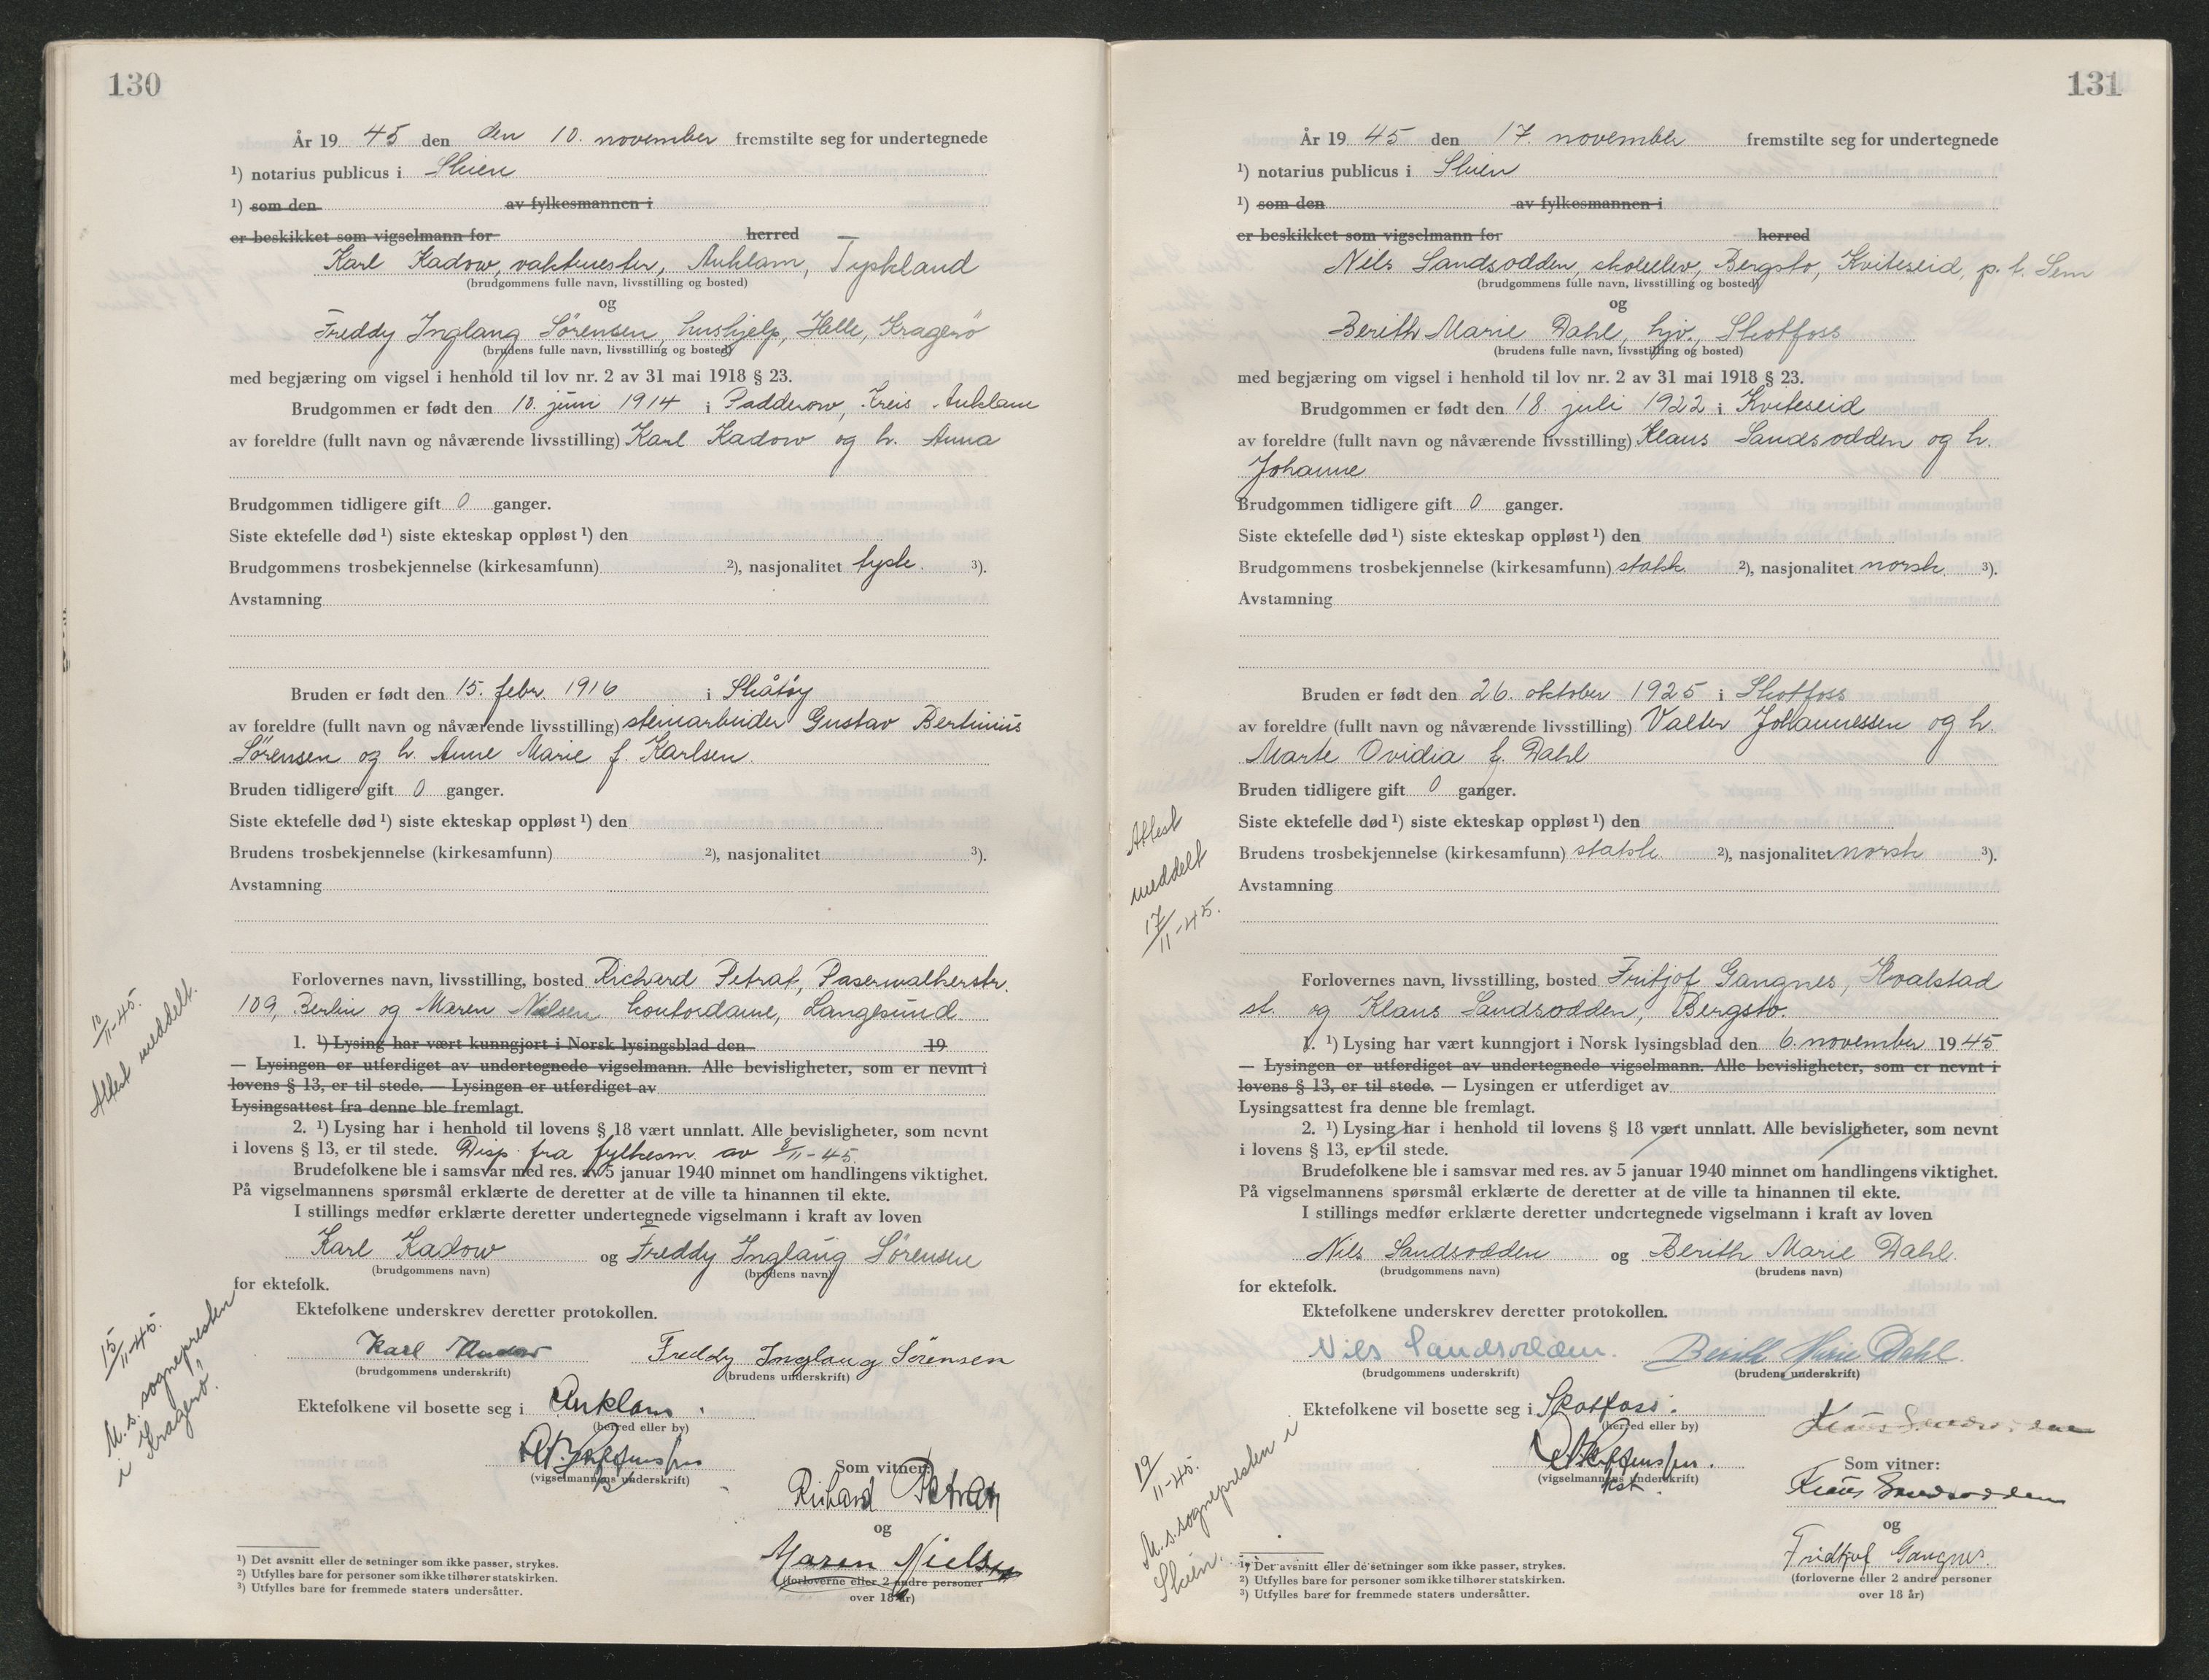 130
År 19 45 den den 10. november fremstilte seg for undertegnede
¹) notarius publicus i Skien
¹) som den av fylkesmannen i
er beskikket som vigselmann for herred
Karl Kadow, vaktmester, Anklam, Tyskland
(brudgommens fulle navn, livsstilling og bosted)
og
Freddy Inglaug Sörensen, hushjelp, Helle, Kragerö
(brudens fulle navn, livsstilling og bosted)
med begjæring om vigsel i henhold til lov nr. 2 av 31 mai 1918 § 23.
Brudgommen er født den 10. juni 1914 i Padderow, Kreis Anklam
av foreldre (fullt navn og nåværende livsstilling) Karl Kadow og h. Anna
Brudgommen tidligere gift 0 ganger.
Siste ektefelle død ¹) siste ekteskap oppløst ¹) den
Brudgommens trosbekjennelse (kirkesamfunn) ²), nasjonalitet tysk. ³).
Avstamning
Bruden er født den 15. febr. 1916 i Skåtøy
av foreldre (fullt navn og nåværende livsstilling) steinarbeider Gustav Bertinius
Sörensen og h. Anne Marie f. Karlsen.
Bruden tidligere gift 0 ganger.
Siste ektefelle død ¹) siste ekteskap oppløst ¹) den
Brudens trosbekjennelse (kirkesamfunn) ²), nasjonalitet ³).
Avstamning
Forlovernes navn, livsstilling, bosted Richard Petrat, Paserwalkerstr.
109, Berlin og Maren Nielsen kontordame, Langesund.
1. ¹) Lysing har vært kunngjort i Norsk lysingsblad den 19
— Lysingen er utferdiget av undertegnede vigselmann. Alle bevisligheter, som er nevnt i
lovens § 13, er til stede. — Lysingen er utferdiget av
Lysingsattest fra denne ble fremlagt.
2. ¹) Lysing har i henhold til lovens § 18 vært unnlatt. Alle bevisligheter, som nevnt
i lovens § 13, er til stede. Disp. fra fylkesm. av 8/11-45.
Brudefolkene ble i samsvar med res. av 5 januar 1940 minnet om handlingens viktighet.
På vigselmannens spørsmål erklærte de deretter at de ville ta hinannen til ekte.
I stillings medfør erklærte deretter undertegnede vigselmann i kraft av loven
Karl Kadow og Freddy Inglaug Sörensen
(brudgommens navn) (brudens navn)
for ektefolk.
Ektefolkene underskrev deretter protokollen.
Karl Kadow Freddy Inglaug Sörensen
(brudgommens underskrift) (brudens underskrift)
Ektefolkene vil bosette seg i Anklam.
(herred eller by)
(vigselmannens underskrift)
Som vitner:
Richard Petrat
og
Maren Nielsen
(forloverne eller 2 andre personer
over 18 år)
¹) Det avsnitt eller de setninger som ikke passer, strykes.
²) Utfylles bare for personer som ikke tilhører statskirken.
³) Utfylles bare for fremmede staters undersåtter.
10/11-45.
Attest meddelt.
15/11-45.
M.s. sognepresten
i Kragerö.
131
År 19 45 den 17. november fremstilte seg for undertegnede
¹) notarius publicus i Skien
¹) som den av fylkesmannen i
er beskikket som vigselmann for herred
Nils Sandsodden, skoleelev, Bergsto, Kviteseid, p. t. Sem
(brudgommens fulle navn, livsstilling og bosted)
og
Berith Marie Dahl, hjv., Skotfoss
(brudens fulle navn, livsstilling og bosted)
med begjæring om vigsel i henhold til lov nr. 2 av 31 mai 1918 § 23.
Brudgommen er født den 18. juli 1922 i Kviteseid
av foreldre (fullt navn og nåværende livsstilling) Klaus Sandsodden og h.
Johanne
Brudgommen tidligere gift 0 ganger.
Siste ektefelle død ¹) siste ekteskap oppløst ¹) den
Brudgommens trosbekjennelse (kirkesamfunn) statsk. ²), nasjonalitet norsk. ³).
Avstamning
Bruden er født den 26. oktober 1925 i Skotfoss
av foreldre (fullt navn og nåværende livsstilling) Valter Johannessen og h.
Marte Ovidia f. Dahl
Bruden tidligere gift 0 ganger.
Siste ektefelle død ¹) siste ekteskap oppløst ¹) den
Brudens trosbekjennelse (kirkesamfunn) statsk. ²), nasjonalitet norsk ³).
Avstamning
Forlovernes navn, livsstilling, bosted Fritjof Gangnes, Hvalstad
st. og Klaus Sandsodden, Bergsto.
1. ¹) Lysing har vært kunngjort i Norsk lysingsblad den 6. november 19 45
— Lysingen er utferdiget av undertegnede vigselmann. Alle bevisligheter, som er nevnt i
lovens § 13, er til stede. — Lysingen er utferdiget av
Lysingsattest fra denne ble fremlagt.
2. ¹) Lysing har i henhold til lovens § 18 vært unnlatt. Alle bevisligheter, som nevnt
i lovens § 13, er til stede.
Brudefolkene ble i samsvar med res. av 5 januar 1940 minnet om handlingens viktighet.
På vigselmannens spørsmål erklærte de deretter at de ville ta hinannen til ekte.
I stillings medfør erklærte deretter undertegnede vigselmann i kraft av loven
Nils Sandsodden og Berith Marie Dahl.
(brudgommens navn) (brudens navn)
for ektefolk.
Ektefolkene underskrev deretter protokollen.
Nils Sandsodden. Berith Marie Dahl.
(brudgommens underskrift) (brudens underskrift)
Ektefolkene vil bosette seg i Skotfoss.
(herred eller by)
Klaus Sandsodden
(vigselmannens underskrift)
kst.
Som vitner:
Klaus Sandsodden
og
Fridtjof Gangnes.
(forloverne eller 2 andre personer
over 18 år)
¹) Det avsnitt eller de setninger som ikke passer, strykes.
²) Utfylles bare for personer som ikke tilhører statskirken.
³) Utfylles bare for fremmede staters undersåtter.
Attest
meddelt
17/11-45.
19/11-45.
M.s. sognepresten i
Skien.